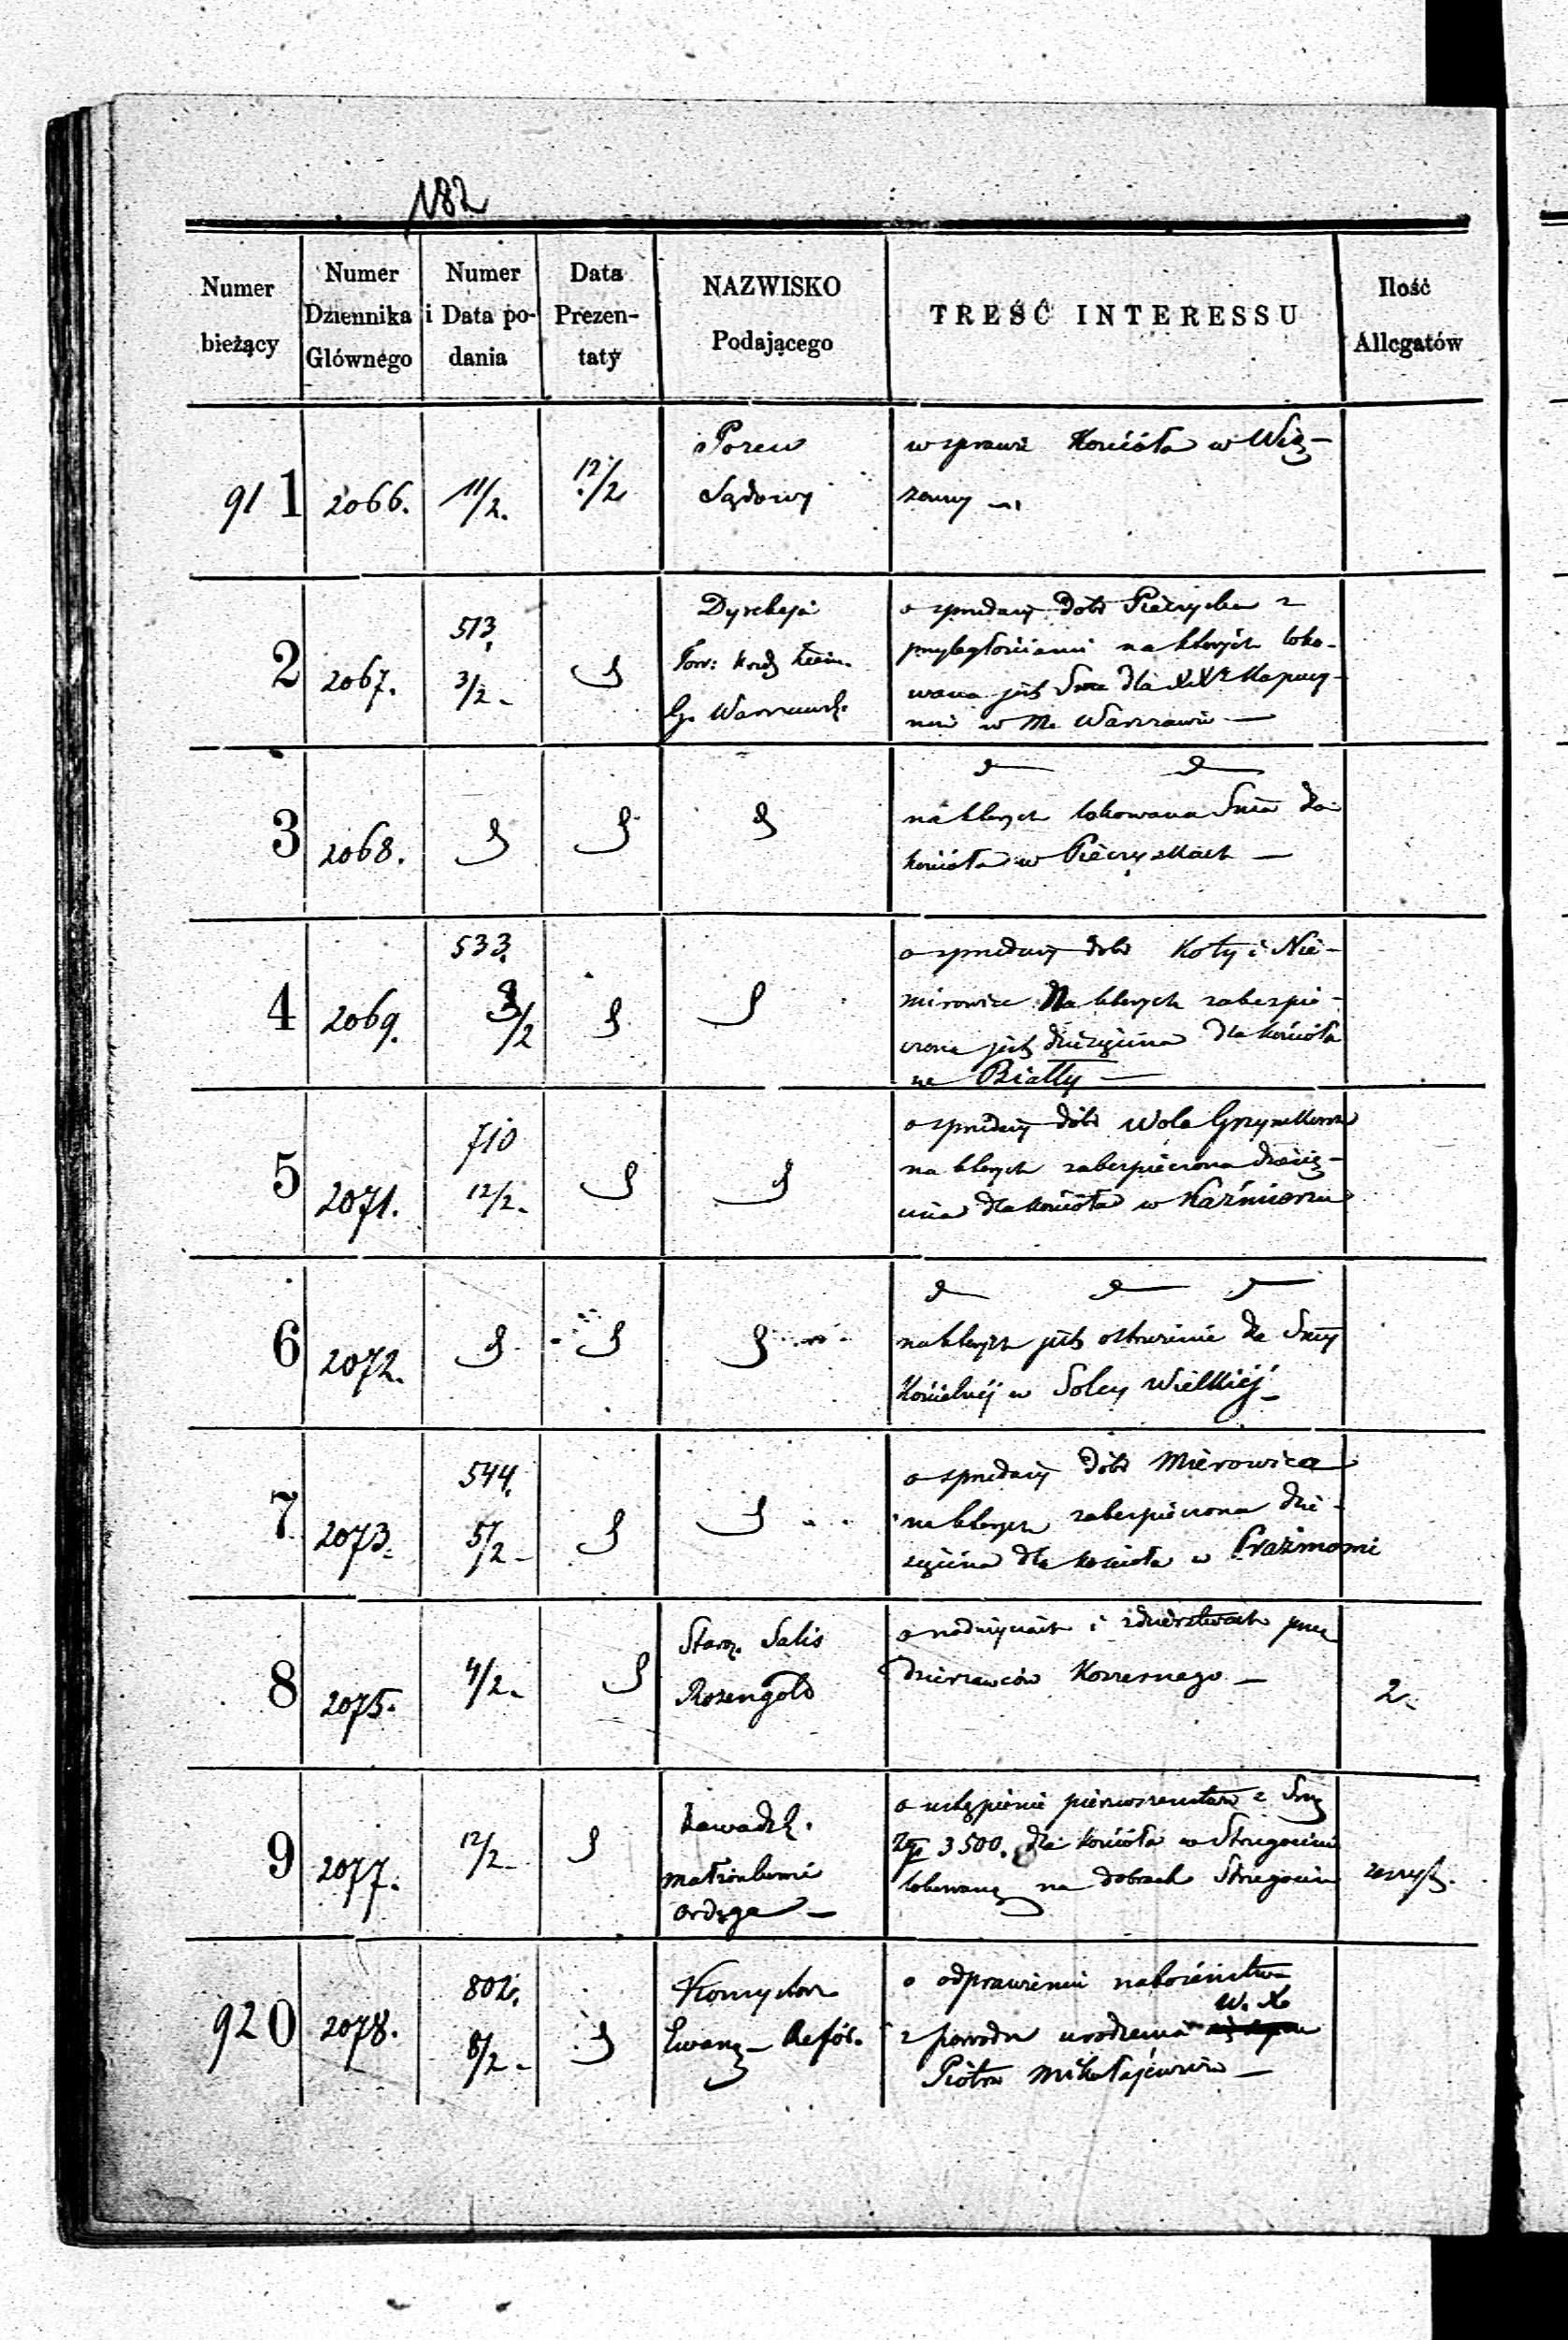 182
Numer bieżący
Numer Dziennika Głównego
Numer i Data podania
Data Prezentaty
NAZWISKO Podającego
TREŚĆ INTERESSU
Ilość Allegatów
911 2066. 11/2. 12/2 Pozew Sądowy
w sprawie Kościoła w Wią-
zowny
2 2067. 513. 3/2 Dyrekcja Tow: Kred. Ziem. G. Warszawsk.
o sprzedaży dóbr z
przyległościami na których loko-
wana jest Sma dla XX Kapucy-
nów w M. Warszawie —
3 2068.
na których lokowana Sma dla
Kościoła w Pieczyskach —
4 2069. 533. 3/2
o sprzedaży dóbr Koty i Nie-
mirowice Na których zabezpie-
czona jest dziesięcina dla Kościoła
we Biatty —
5 2071. 710 12/2.
o sprzedaży dóbr Wola
na których zabezpieczona dziesię-
cina dla Kościoła w Kaźmierzu
6 2072.
na których jest ostrzeżenie dla Smy
Kościelnéj w Solcy Wielkiéj —
7 2073. 544. 5/2 -
o sprzedaży dóbr Mierowice
na których zabezpieczona dzie-
sięcina dla Kościoła w Prażmowie
8 2075. 4/2. Starz. Salis Rozengold
o nadużyciach i zdzierstwach przez
dzierżawców Koszernego — 2.
9 2077. 12/2 - małżonkowie Ordęga —
o ustąpienie pierwszeństwa z Smą
Złp 3500. dla Kościoła w Strzegocinie
lokowaną na dobrach Strzegocin
920 2078. 802. 8/2 - Konsystorz Ewang — Refór.
o odprawieniu nabożeństwa
z powodu urodzenia W. X.
Piotra Mikołajewicza —